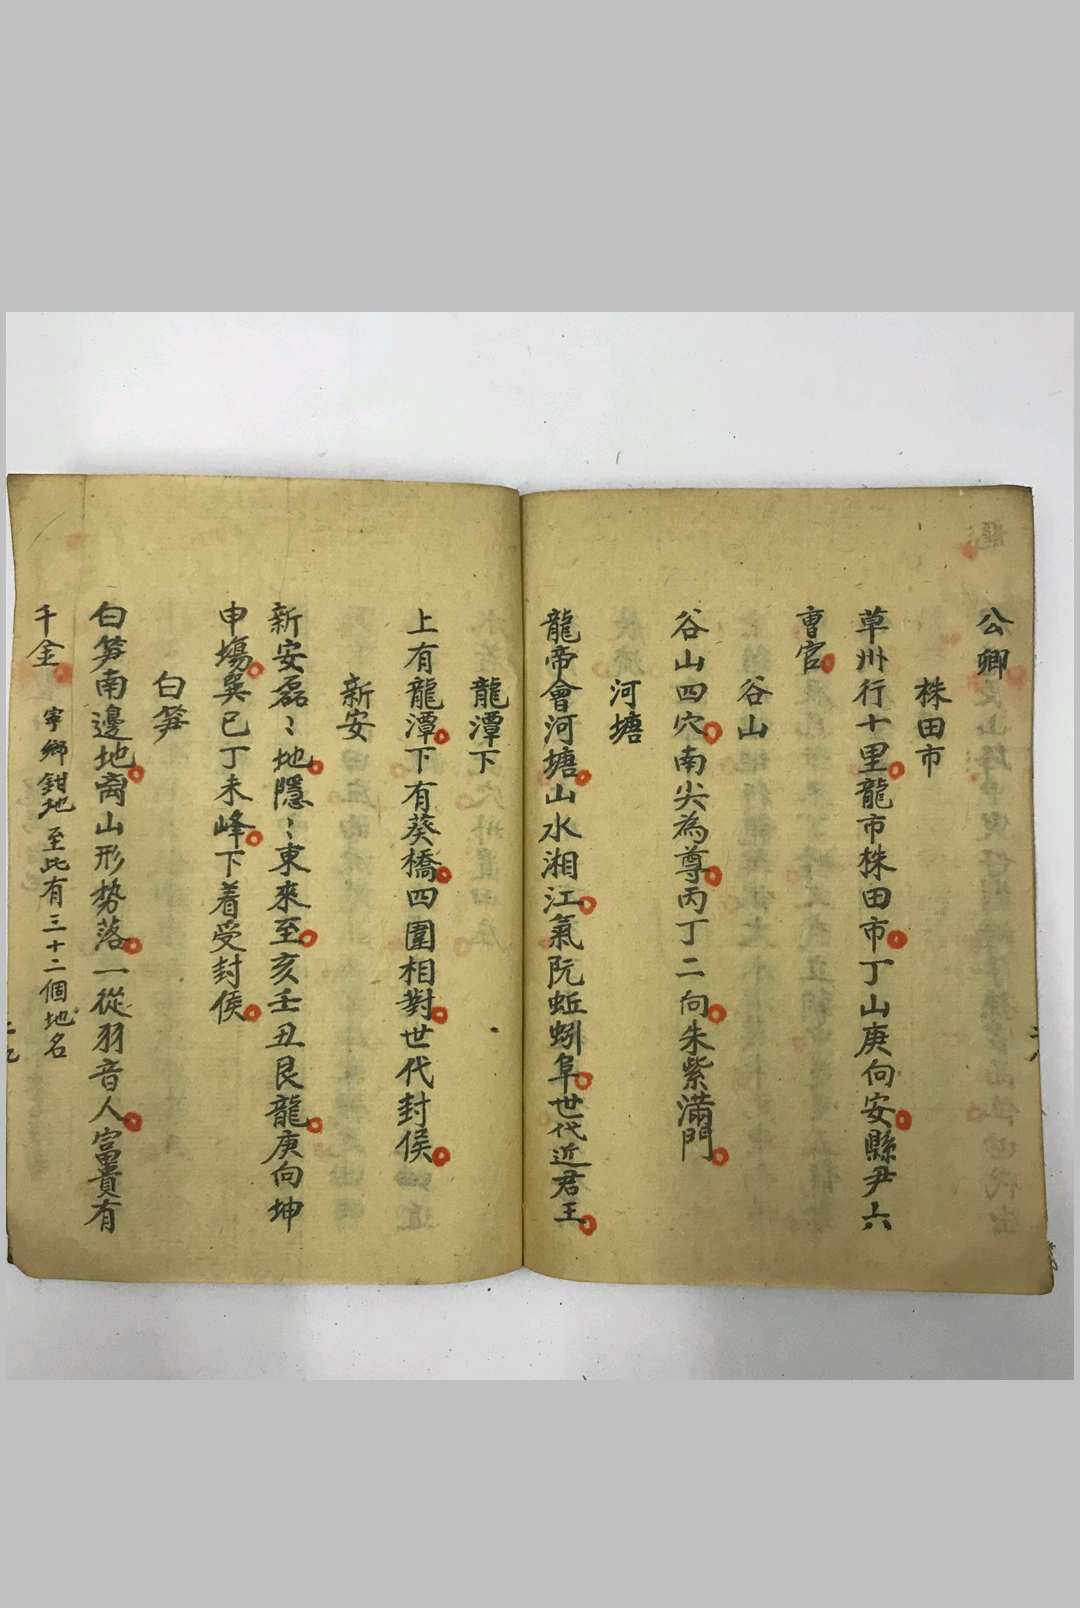 公卿
株田市
草州行十里龍市株田市丁山庚向安縣尹六
曺官
谷山
谷山四穴南尖為尊丙丁二向朱紫滿門
河塘
龍帝會河塘山水湘江氣阮蚯蚓阜世代近君王
龍潭下
上有龍潭下有葵橋四圍相對世代封侯
新安
新安磊〻地隱〻東來至亥壬丑艮龍庚向坤
申塲巽巳丁未峰下着受封侯
白笋
白笋南邊地离山形势落一從羽音人富貴有
千金 寕鄉鉗地至此有三十二個地名